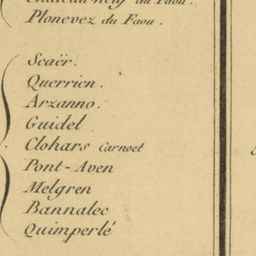 Chateauneuf du Faou.
Plonevez du Faou.
Scaër.
Querrien.
Arzanno.
Guidel
Clohars Carnoet
Pont-Aven
Melgren
Bannalec
Quimperlé